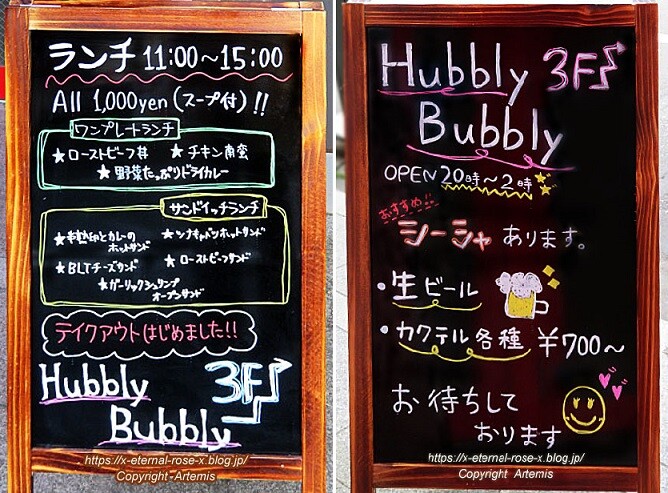 ランチ 11:00〜15:00
All 1,000yen (スープ付) !!
ワンプレートランチ
★ローストビーフ丼 ★チキン南蛮
★野菜たっぷりドライカレー
サンドイッチランチ
★半熟卵とカレーの
ホットサンド
★ツナキャベツホットサンド
★BLTチーズサンド
★ローストビーフサンド
★ガーリックシュリンプ
オープンサンド
テイクアウトはじめました!!
Hubbly
Bubbly
3F
https://x-eternal-rose-x.blog.jp/
Copyright Artemis
Hubbly 3F
Bubbly
OPEN 20時〜2時
おすすめ!!
シーシャ あります。
・生ビール
・カクテル各種 ¥700〜
お待ちして
おります
https://x-eternal-rose-x.blog.jp/
Copyright Artemis